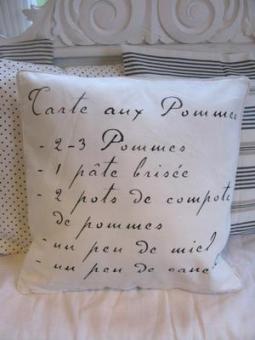 Tarte aux Pommes
- 2-3 Pommes
- 1 pâte brisée
- 2 pots de compote
de pommes
- un peu de miel
- un peu de